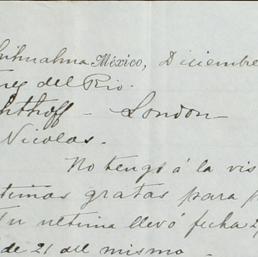 Chihuahua México, Diciembre
del Rio.
London
Nicolas.
No tengo á la vis
timas gratas para
Tu ultima llevó fecha 2
de 21 del mismo